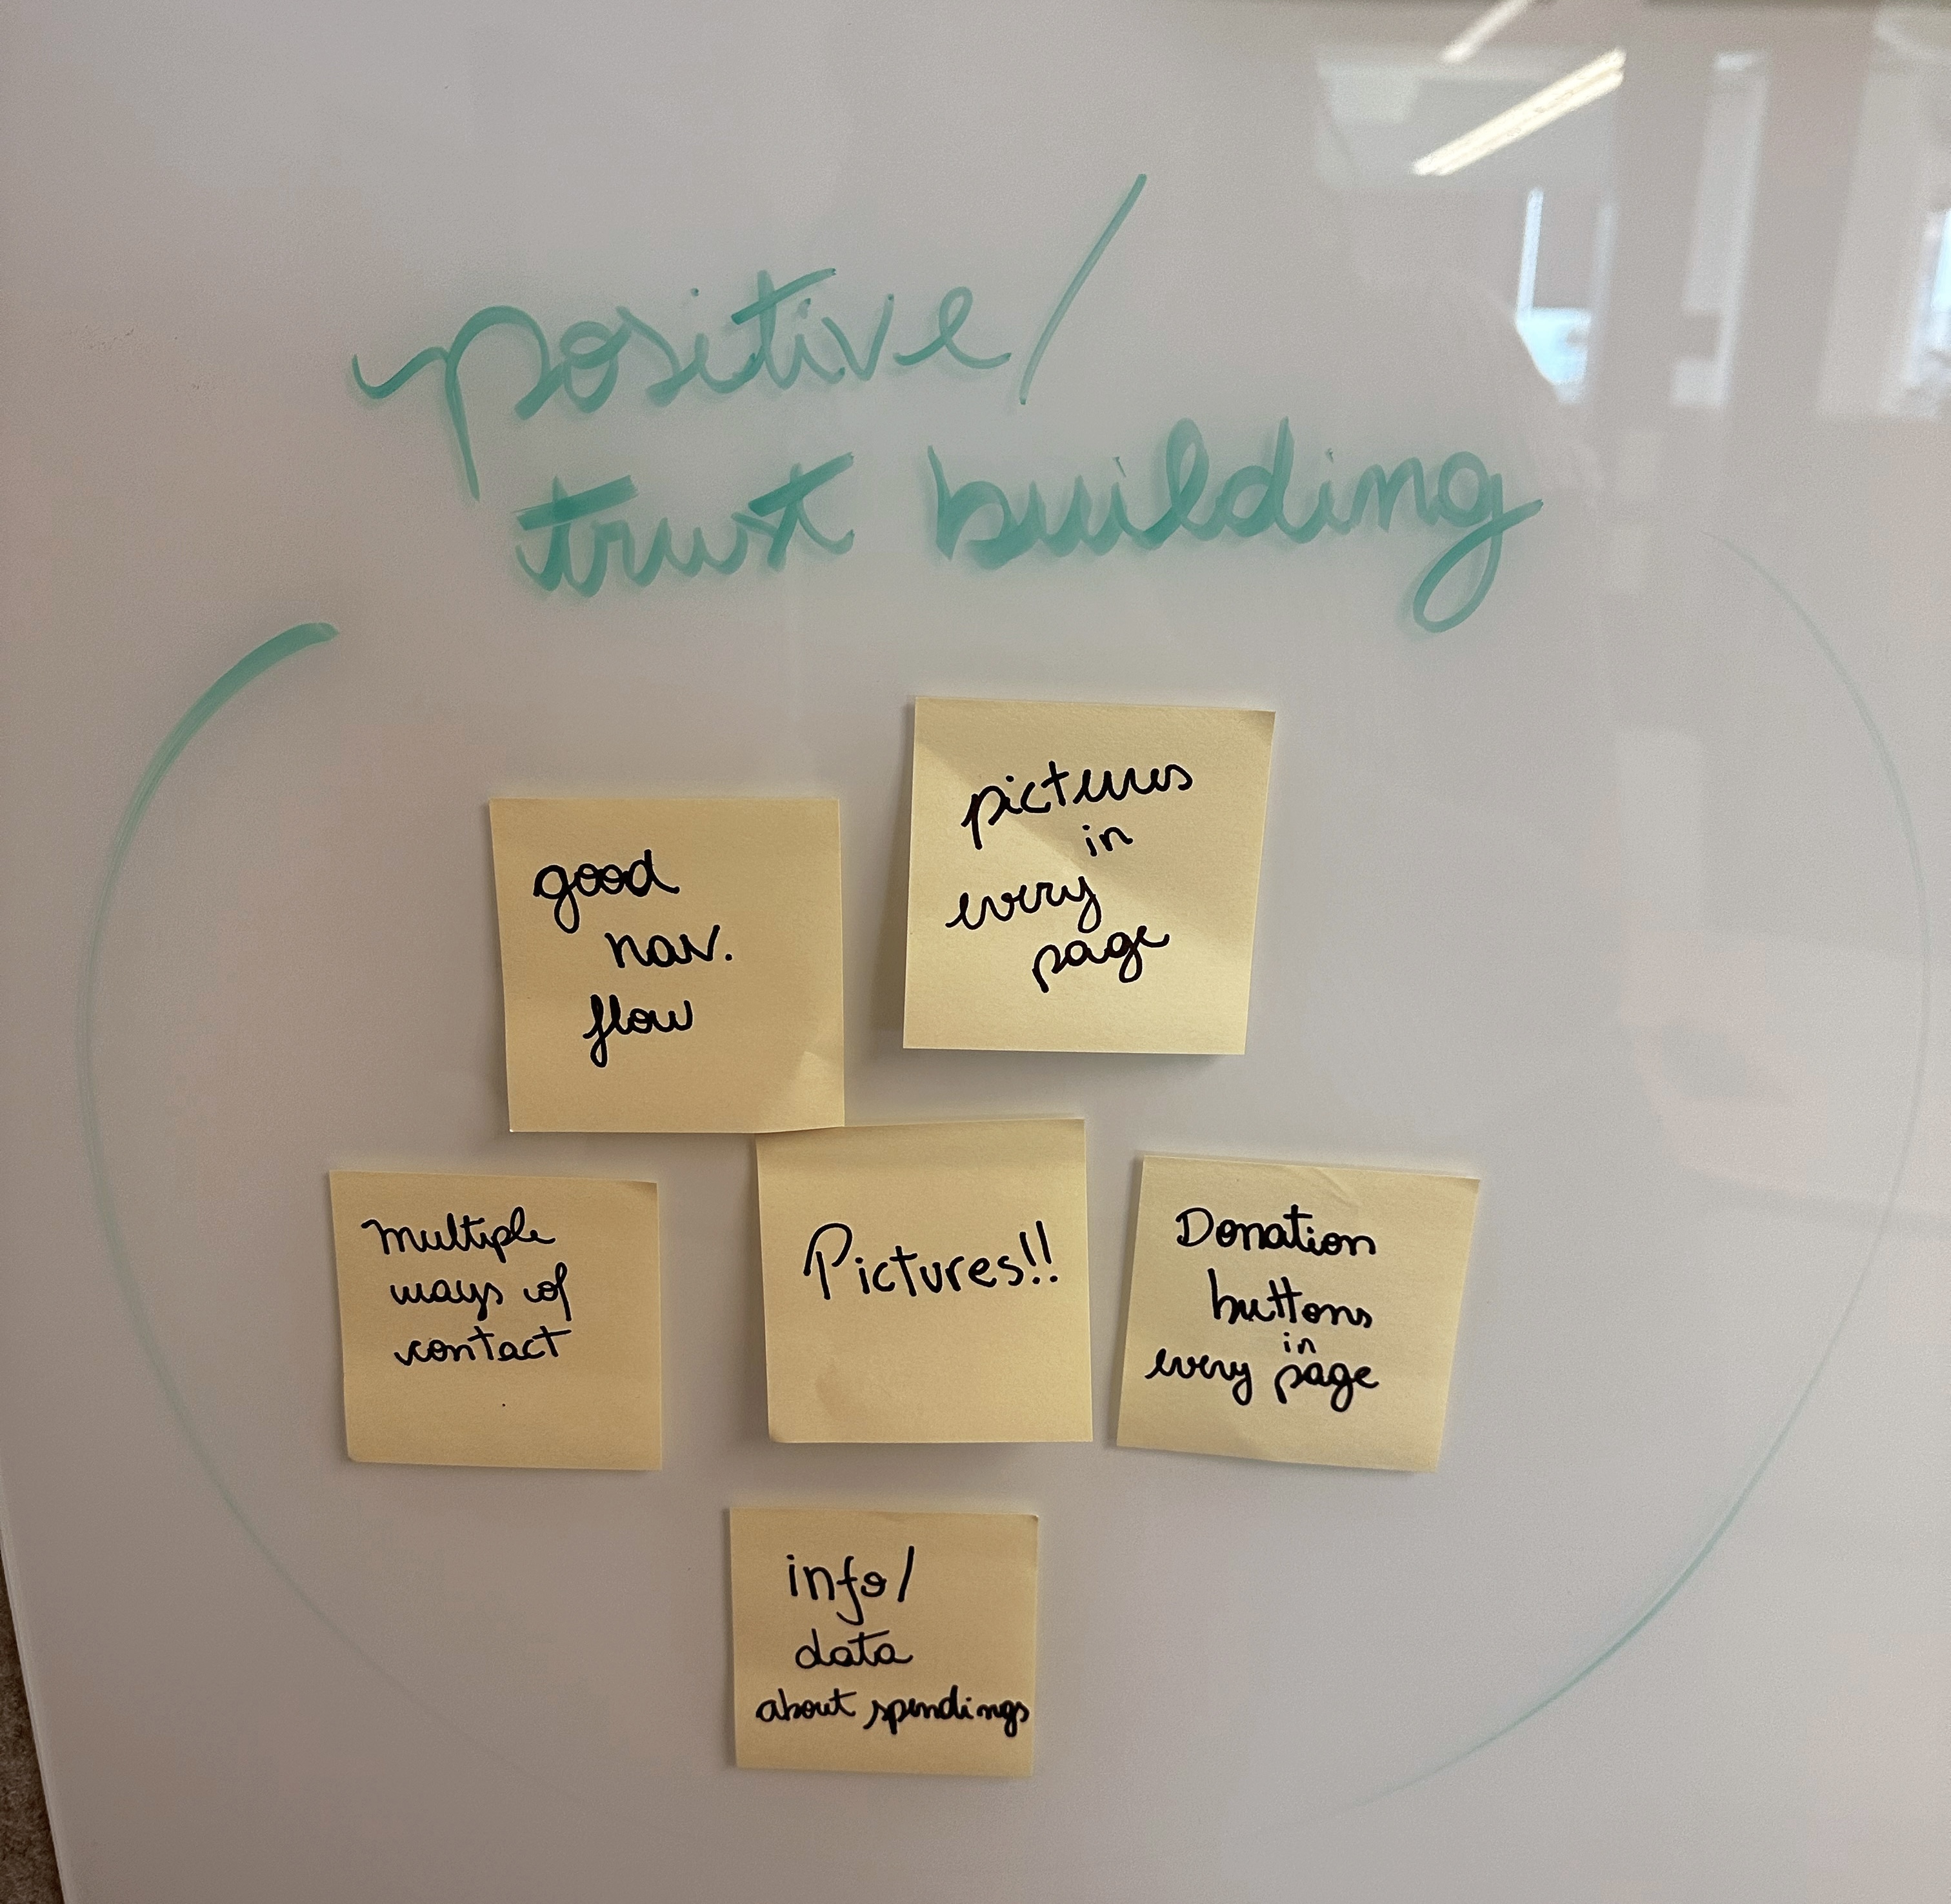 positive/
trust building
good
nav.
flow
pictures
in
every
page
Multiple
ways of
contact
Pictures!!
Donation
buttons
in
every page
info/
data
about spendings